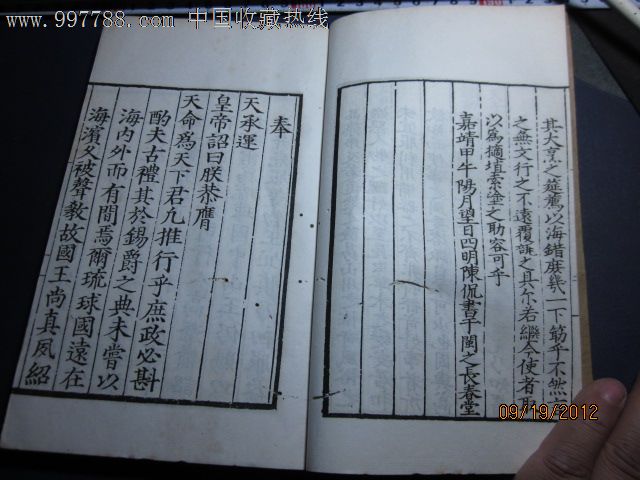 www.997788.com 中国收藏热线
其大烹之筵薦以海錯庶幾一下筯乎不然
之無文行之不遠覆訴之具尔若繼今使者取
以爲擿埴索塗之助容可乎
嘉靖甲午陽月望日四明陳侃書于閩之長春堂
奉
天承運
皇帝詔曰朕恭膺
天命爲天下君凢推行乎庶政必斟
酌夫古禮其於錫爵之典未嘗以
海內外而有間焉爾琉球國遠在
海濱久被聲教故國王尚真夙紹
09/19/2012